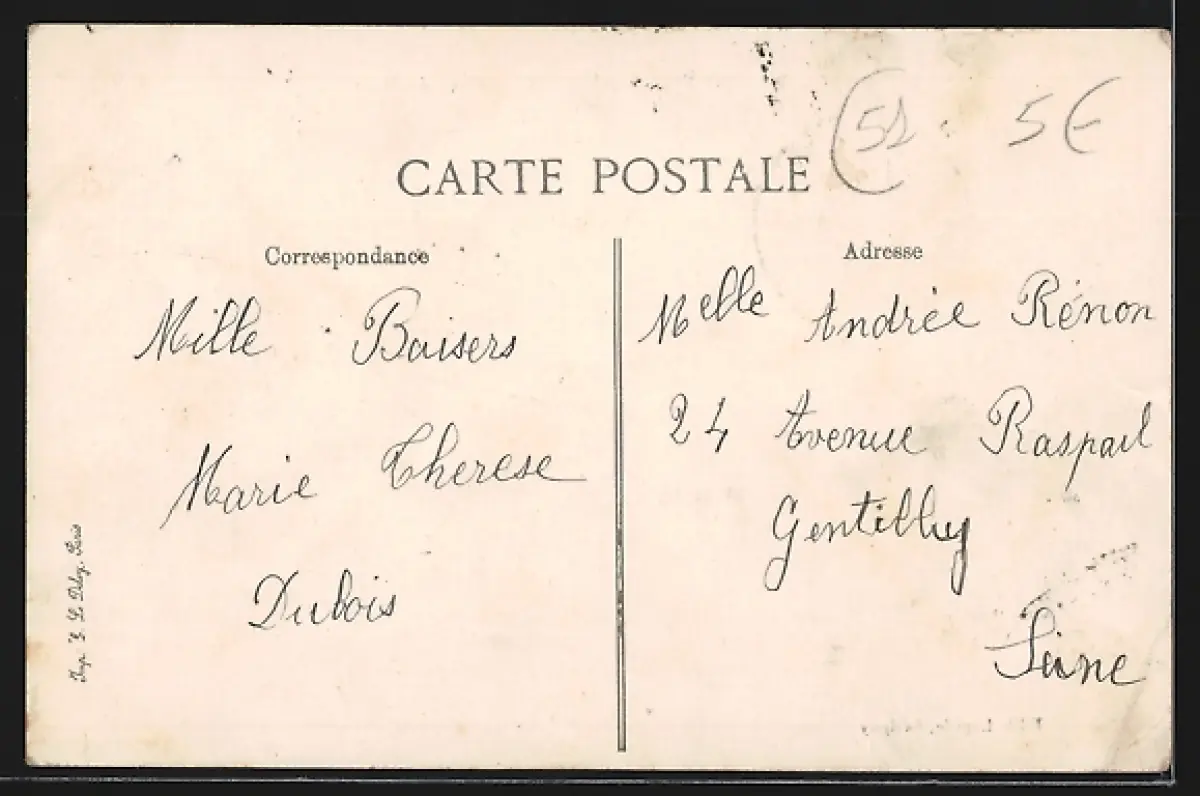 CARTE POSTALE
5€
Correspondance
Mille Baisers
Marie Therese
Dubois
Adresse
Melle Andrée Rénon
24 Avenue Raspail
Gentilly
Seine